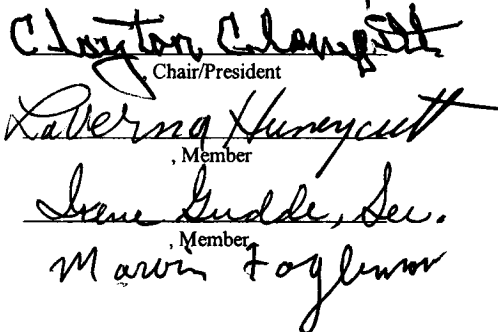 Clayton
, Chair/President
LaVerna Huneycutt
, Member
Irene Gudde, Sec.
, Member
Marvin